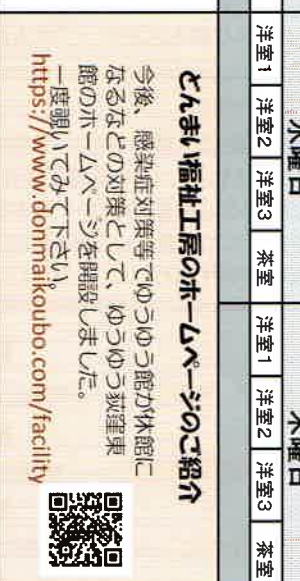 水曜日
木曜日
洋室1 洋室2 洋室3 茶室 洋室1 洋室2 洋室3 茶室
どんまい福祉工房のホームページのご紹介
今後、感染症対策等でゆうゆう館が休館に
なるなどの対策として、ゆうゆう荻窪東
館のホームページを開設しました。
一度覗いてみて下さい。
https://www.donmaikoubo.com/facility